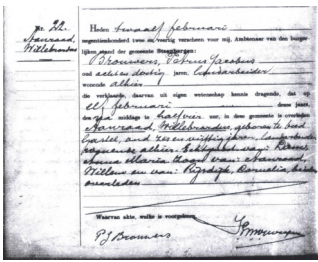 No 22.
Aanraad,
Willebrordus
Heden twaalf februari
negentienhonderd twee en veertig verscheen voor mij, Ambtenaar van den burger-
lijken stand der gemeente Steenbergen:
Brouwers, Petrus Jacobus
oud acht en dertig jaren, landarbeider
wonende alhier
die verklaarde, daarvan uit eigen wetenschap kennis dragende, dat op
elf februari dezes jaars,
des na middags te half vier ure, in deze gemeente is overleden
Aanraad, Willebrordus, geboren te Oud
Gastel, oud zes en vijftig jaren, landarbeider
wonende alhier. Echtgenoot van:
Anna Maria zoon van: Aanraad,
Willem en van: Rijsdijk, Cornelia, beiden
overleden
Waarvan akte, welke is voorgelezen
P J Brouwers